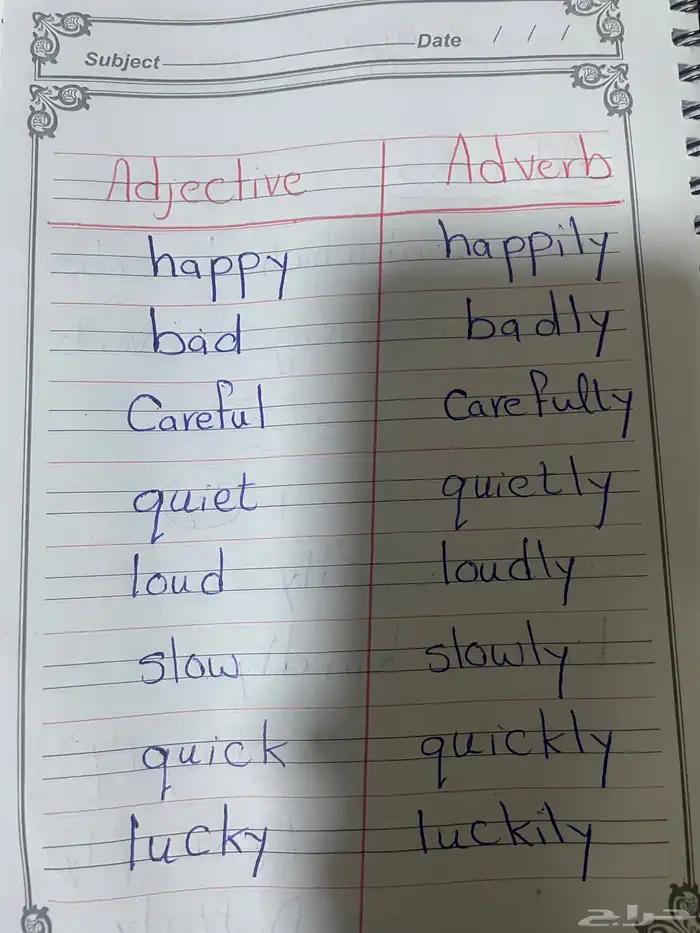 Date / / /
Subject
Adjective Adverb
happy happily
bad badly
Careful Carefully
quiet quietly
loud loudly
slow slowly
quick quickly
lucky luckily
حراج